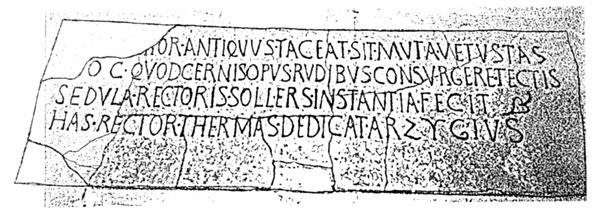 HOR·ANTIQVVS·TACEAT·SIT·MVTA·VETVSTAS
OC·QVOD CERNIS OPVS RVDIBVS CONSVRGERE TECTIS
SEDVLA·RECTORIS SOLLERS INSTANTIA FECIT
HAS·RECTOR·THERMAS DEDICAT ARZYGIVS